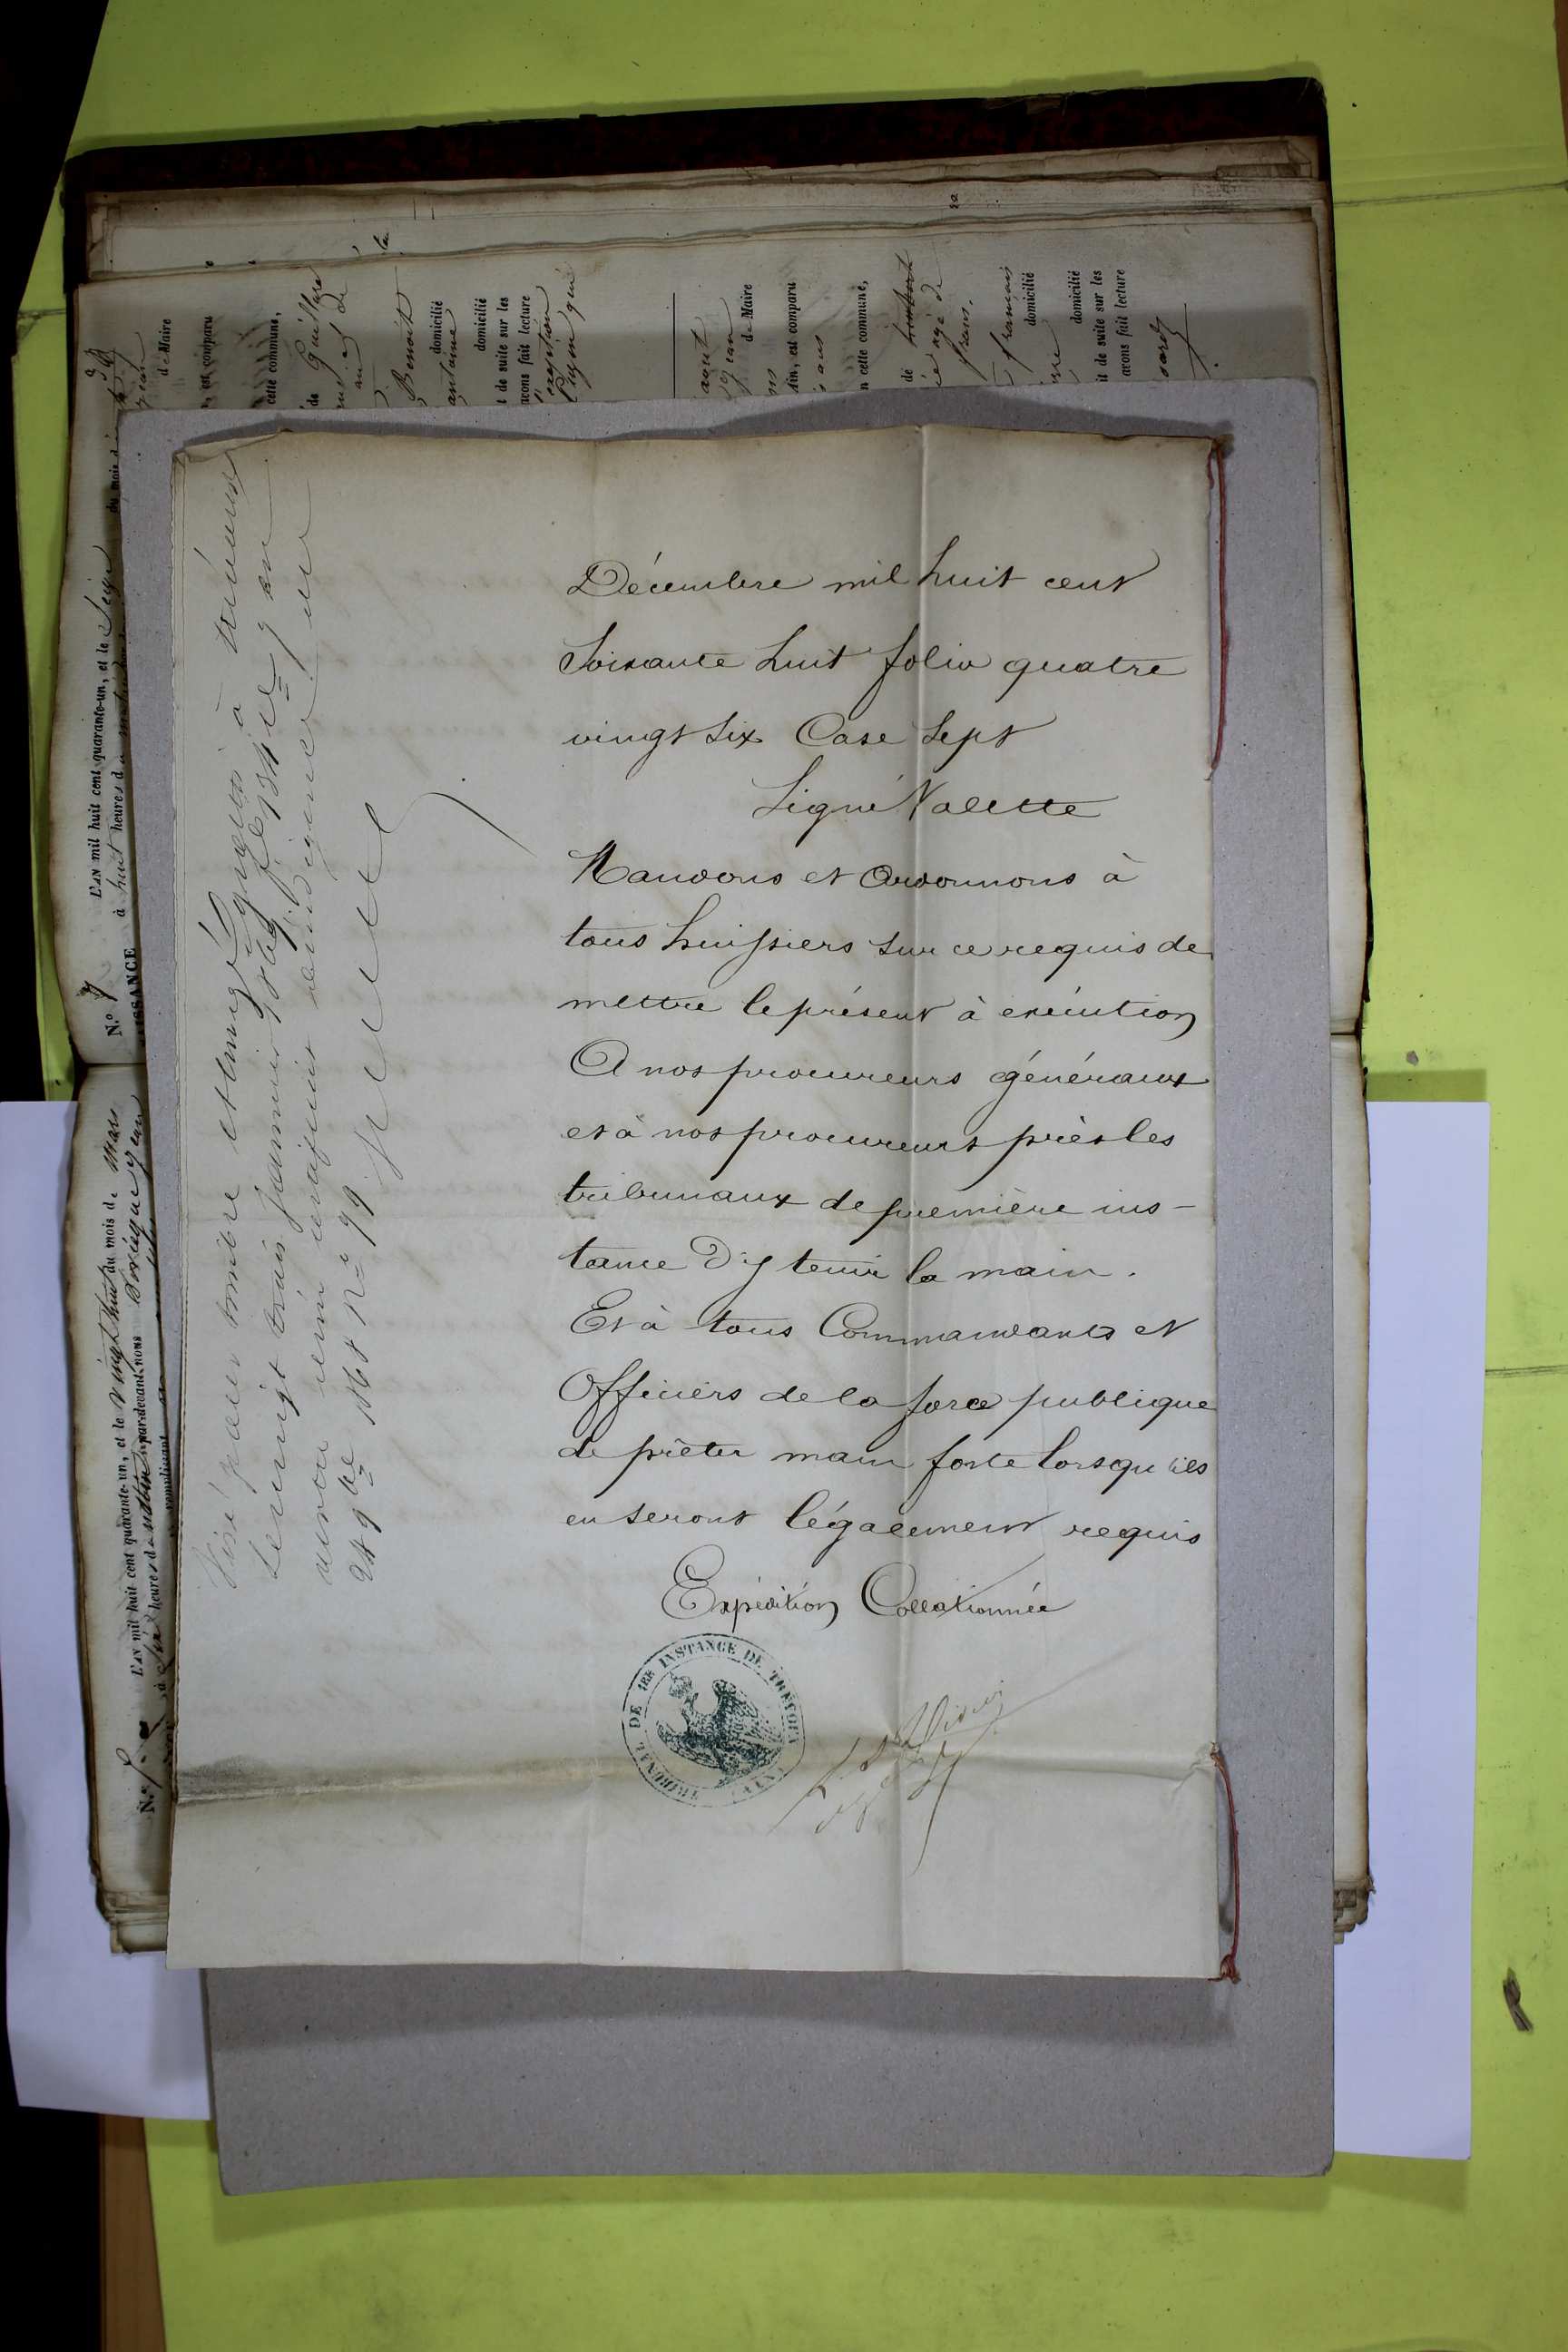 Décembre mil huit cent
Soixante huit folio quatre
vingt six Case Sept
Signé Valette
Mandons et Ordonnons à
tous huissiers sur ce requis de
mettre le présent à exécution
A nos procureurs généraux
et à nos procureurs près les
tribunaux de première ins-
tance D'y tenir la main.
Et à tous Commandants et
Officiers de la force publique
de prêter main forte lorsqu'ils
en seront légalement requis
Expédition Collationnée
TRIBUNAL DE 1RE INSTANCE DE TRÉVOUX (AIN)
Visé pour timbre et enregistré à Trévoux
Le vingt trois Janvier 1869, fo 134 Co 7 en
24 9bre 1868 No 99
No 7
L'AN mil huit cent quarante-un, et le Seize du mois d
NAISSANCE à huit heures du matin
L'AN mil huit cent quarante-un, et le vingt huit du mois de Mars
à six heures du matin par-devant nous
remplissant
de Maire
est comparu
cette commune,
Benoit
domicilié
domicilié
t de suite sur les
avons fait lecture
de Maire
tin, est comparu
n cette commune,
de
français
domicilié
domicilié
it de suite sur les
avons fait lecture